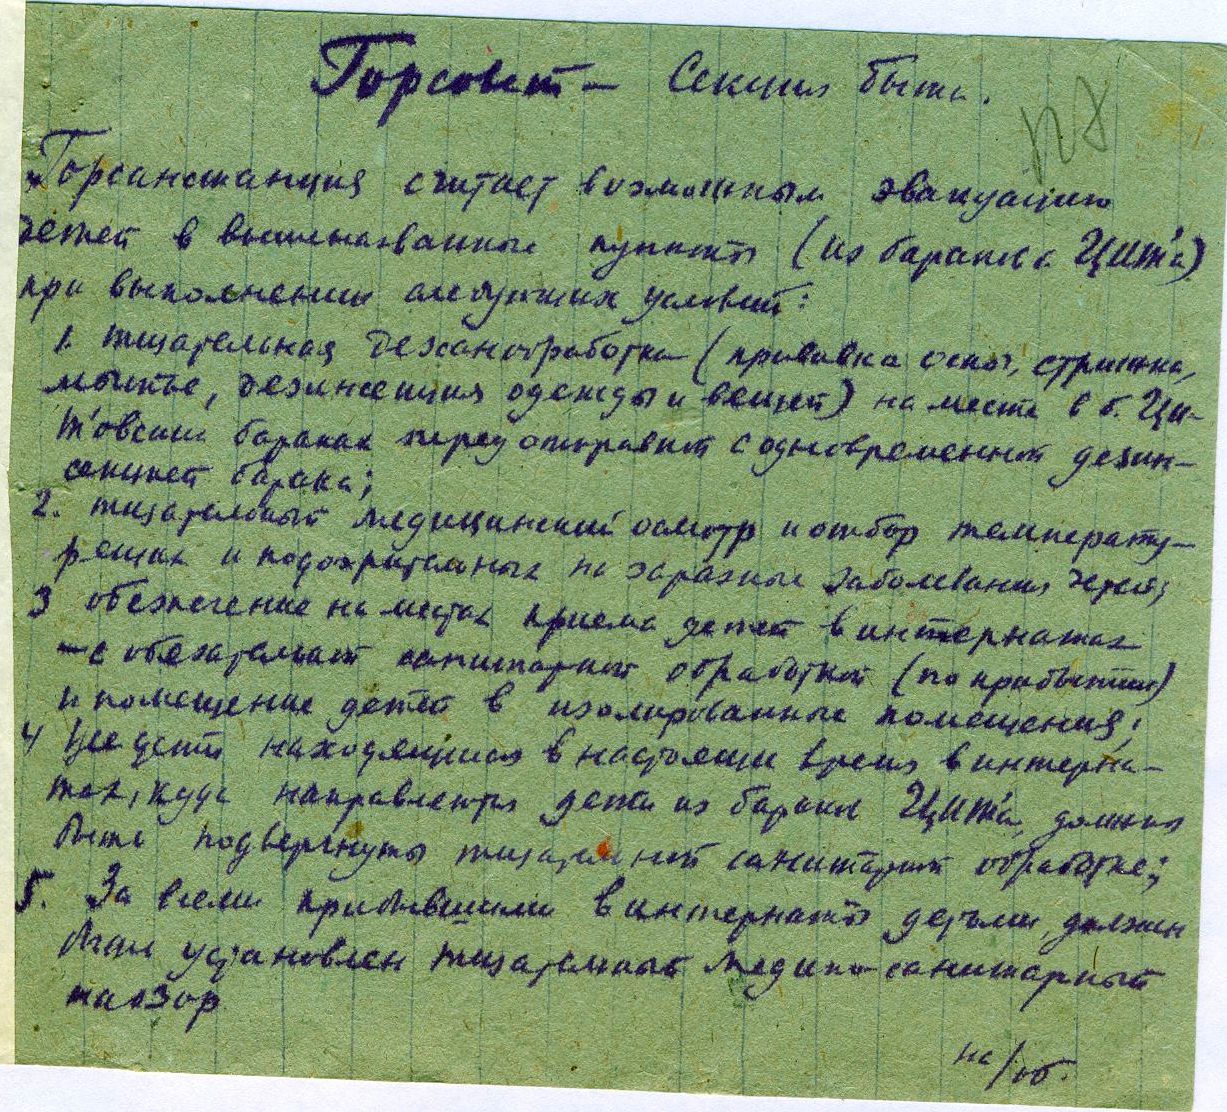 Горсовет – Секция быта.
№8
Горсанстанция считает возможным эвакуацию
детей в вышеназванные пункты (из бараков ЦИТ'а)
при выполнении следующих условий:
1. тщательная санобработка (прививка оспы, стрижка,
мытье, дезинсекция одежды и вещей) на месте в б. Ци-
т'овских бараках перед отправкой с одновременной дезин-
секцией барака;
2. тщательный медицинский осмотр и отбор температу-
рящих и подозрительных на заразные заболевания детей;
3 обеспечение на местах приема детей в интернатах
– с обязательной санитарной обработкой (по прибытии)
и помещение детей в изолированные помещения;
4 Все дети находящиеся в настоящее время в интерна-
тах, куда направляются дети из бараков ЦИТ'а, должны
быть подвергнуты тщательной санитарной обработке;
5. За всеми прибывшими в интернаты детьми, должен
быть установлен тщательный медико-санитарный
надзор
на/об.